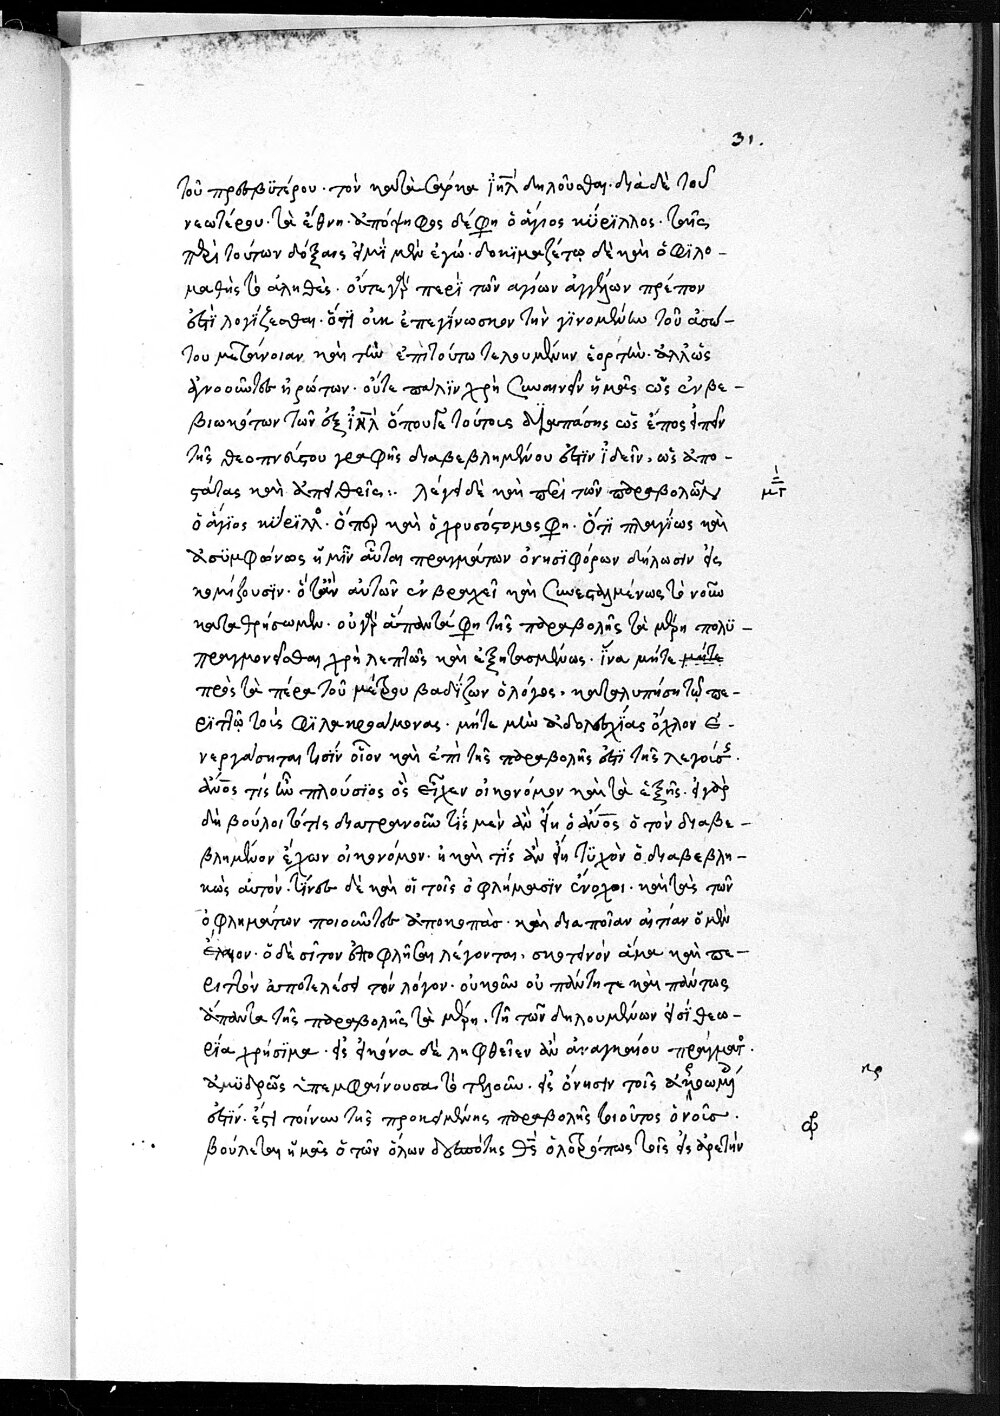 31.
τοῦ πρεσβϋτέρου· τὸν κατὰ σάρκα ϊηλ δηλοῦσθαι· διὰ δὲ τοῦ
νεωτέρου· τὰ ἔθνη· ἀπόψηφος δέ φη ὁ ἅγιος κύριλλος· ταῖς
περὶ τούτων δόξαις ἐμοὶ μὲν ἐγώ· δοκιμαζέτω δὲ καὶ ὁ φϊλο-
μαθὴς τὸ ἀληθὲς· οὔτε γὰρ περὶ τῶν ἁγίων ἀγγέλων πρέπον
ἐστὶ λογίζεσθαι· ὅτϊ οὐκ ἐπεγίνωσκον τὴν γϊνομένην τοῦ ἀσώ-
του μετάνοιαν καὶ τὴν ἐπὶ τούτω τελουμένην ἑορτὴν· ἀλλ' ὡς
ἀγνοοῦντες ἠρώτων· οὔτε πάλϊν χρὴ συναινεῖν ἡμᾶς ὡς εὖ βε-
βιωκότων τῶν ἐξ ϊηλ ὅπουγε τούτοις διαπάσης ὡς ἔπος εἰπεῖν
τῆς θεοπνεύστου γραφῆς διαβεβλημένου ἐστὶν ἰδεῖν, ὡς ἀπο-
στάτας καὶ ἀπειθεῖς:· λέγει δὲ καὶ περὶ τῶν παραβολῶν
ὁ ἅγιος κύριλλο· ὅπερ καὶ ὁ χρυσόστομος φη· ὅτϊ πλαγίως καὶ
ἀσϋμφώνως ἡμῖν αὗται πραγμάτων ὀνησϊφόρων δήλωσιν εἰσ
κομίζουσιν· ὅταν αὐτῶν ἐν βραχεῖ καὶ συνεσταλμένως τὸ νοοῦ
καταθρήσωμεν· οὐ γὰρ ἅπαντά φη τῆς παραβολῆς τὰ μέρη πολϋ-
πραγμονεῖσθαι χρὴ λεπτῶς καὶ ἐξητασμένως· ἵνα μήτε μήτε
πρὸς τὰ πέρα τοῦ μέτρου βαδίζων ὁ λόγος, καταλυπήση τῷ πε-
ριττῷ τοὺς φϊλακροάμονας· μήτε μὴν ἀδολεσχίας ὄχλον ἐ-
νεργάσηται τισὶν οἷον καὶ ἐπὶ τῆς παραβολῆς ἐστὶ τῆς λεγούσς·
ἀνος τίς ἦν πλούσϊος ὃς εἶχεν οἰκονόμον καὶ τὰ ἑξῆς· εἰ γὰρ
δὴ βούλοιτό τις διατρανοῦν τίς μὲν ἂν εἴη ὁ ἀνος ὁ τὸν διαβε-
βλημένον ἔχων οἰκονόμον· ἢ καὶ τίς ἂν εἴη τϋχὸν ὁ διαβεβλη-
κὼς αὐτὸν· τίνες δὲ καὶ οἱ τοῖς ὀφλήμασϊν ἔνοχοι· καὶ τὰς τῶν
ὀφλημάτων ποιοῦντες ἀποκοπὰς· καὶ διαποίαν αἰτίαν ὁ μὲν
ἔλαιον· ὁ δὲ σῖτον ἐποφλῆσαι λέγονται, σκοτεινὸν ἅμα καὶ πε-
ριττὸν ἀποτελέσει τὸν λόγον· οὐκοῦν οὐ πάντη τε καὶ πάντως
ἅπαντα τῆς παραβολῆς τὰ μέρη, τῆ τῶν δηλουμένων εἰσὶ θεω-
ρία χρήσϊμα· εἰς εἰκόνα δὲ ληφθεῖεν ἂν ἀναγκαίου πράγματος·
ἀμϋδρῶς ὑπεμφαίνουσα τὸ τελοῦν· εἰς ὄνησιν τοῖς ἀκροωμένοις
ἐστϊν· ἔστι τοίνυν τῆς προκειμένης παραβολῆς τοιοῦτος ὁ νοῦς·
βούλεται ἡμᾶς ὁ τῶν ὅλων δεσπότης θς ὁλοτρόπως τοῖς εἰς ἀρετὴν